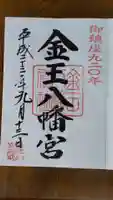 御鎮座九二〇年
金王八幡宮
平成二十三年九月十三日